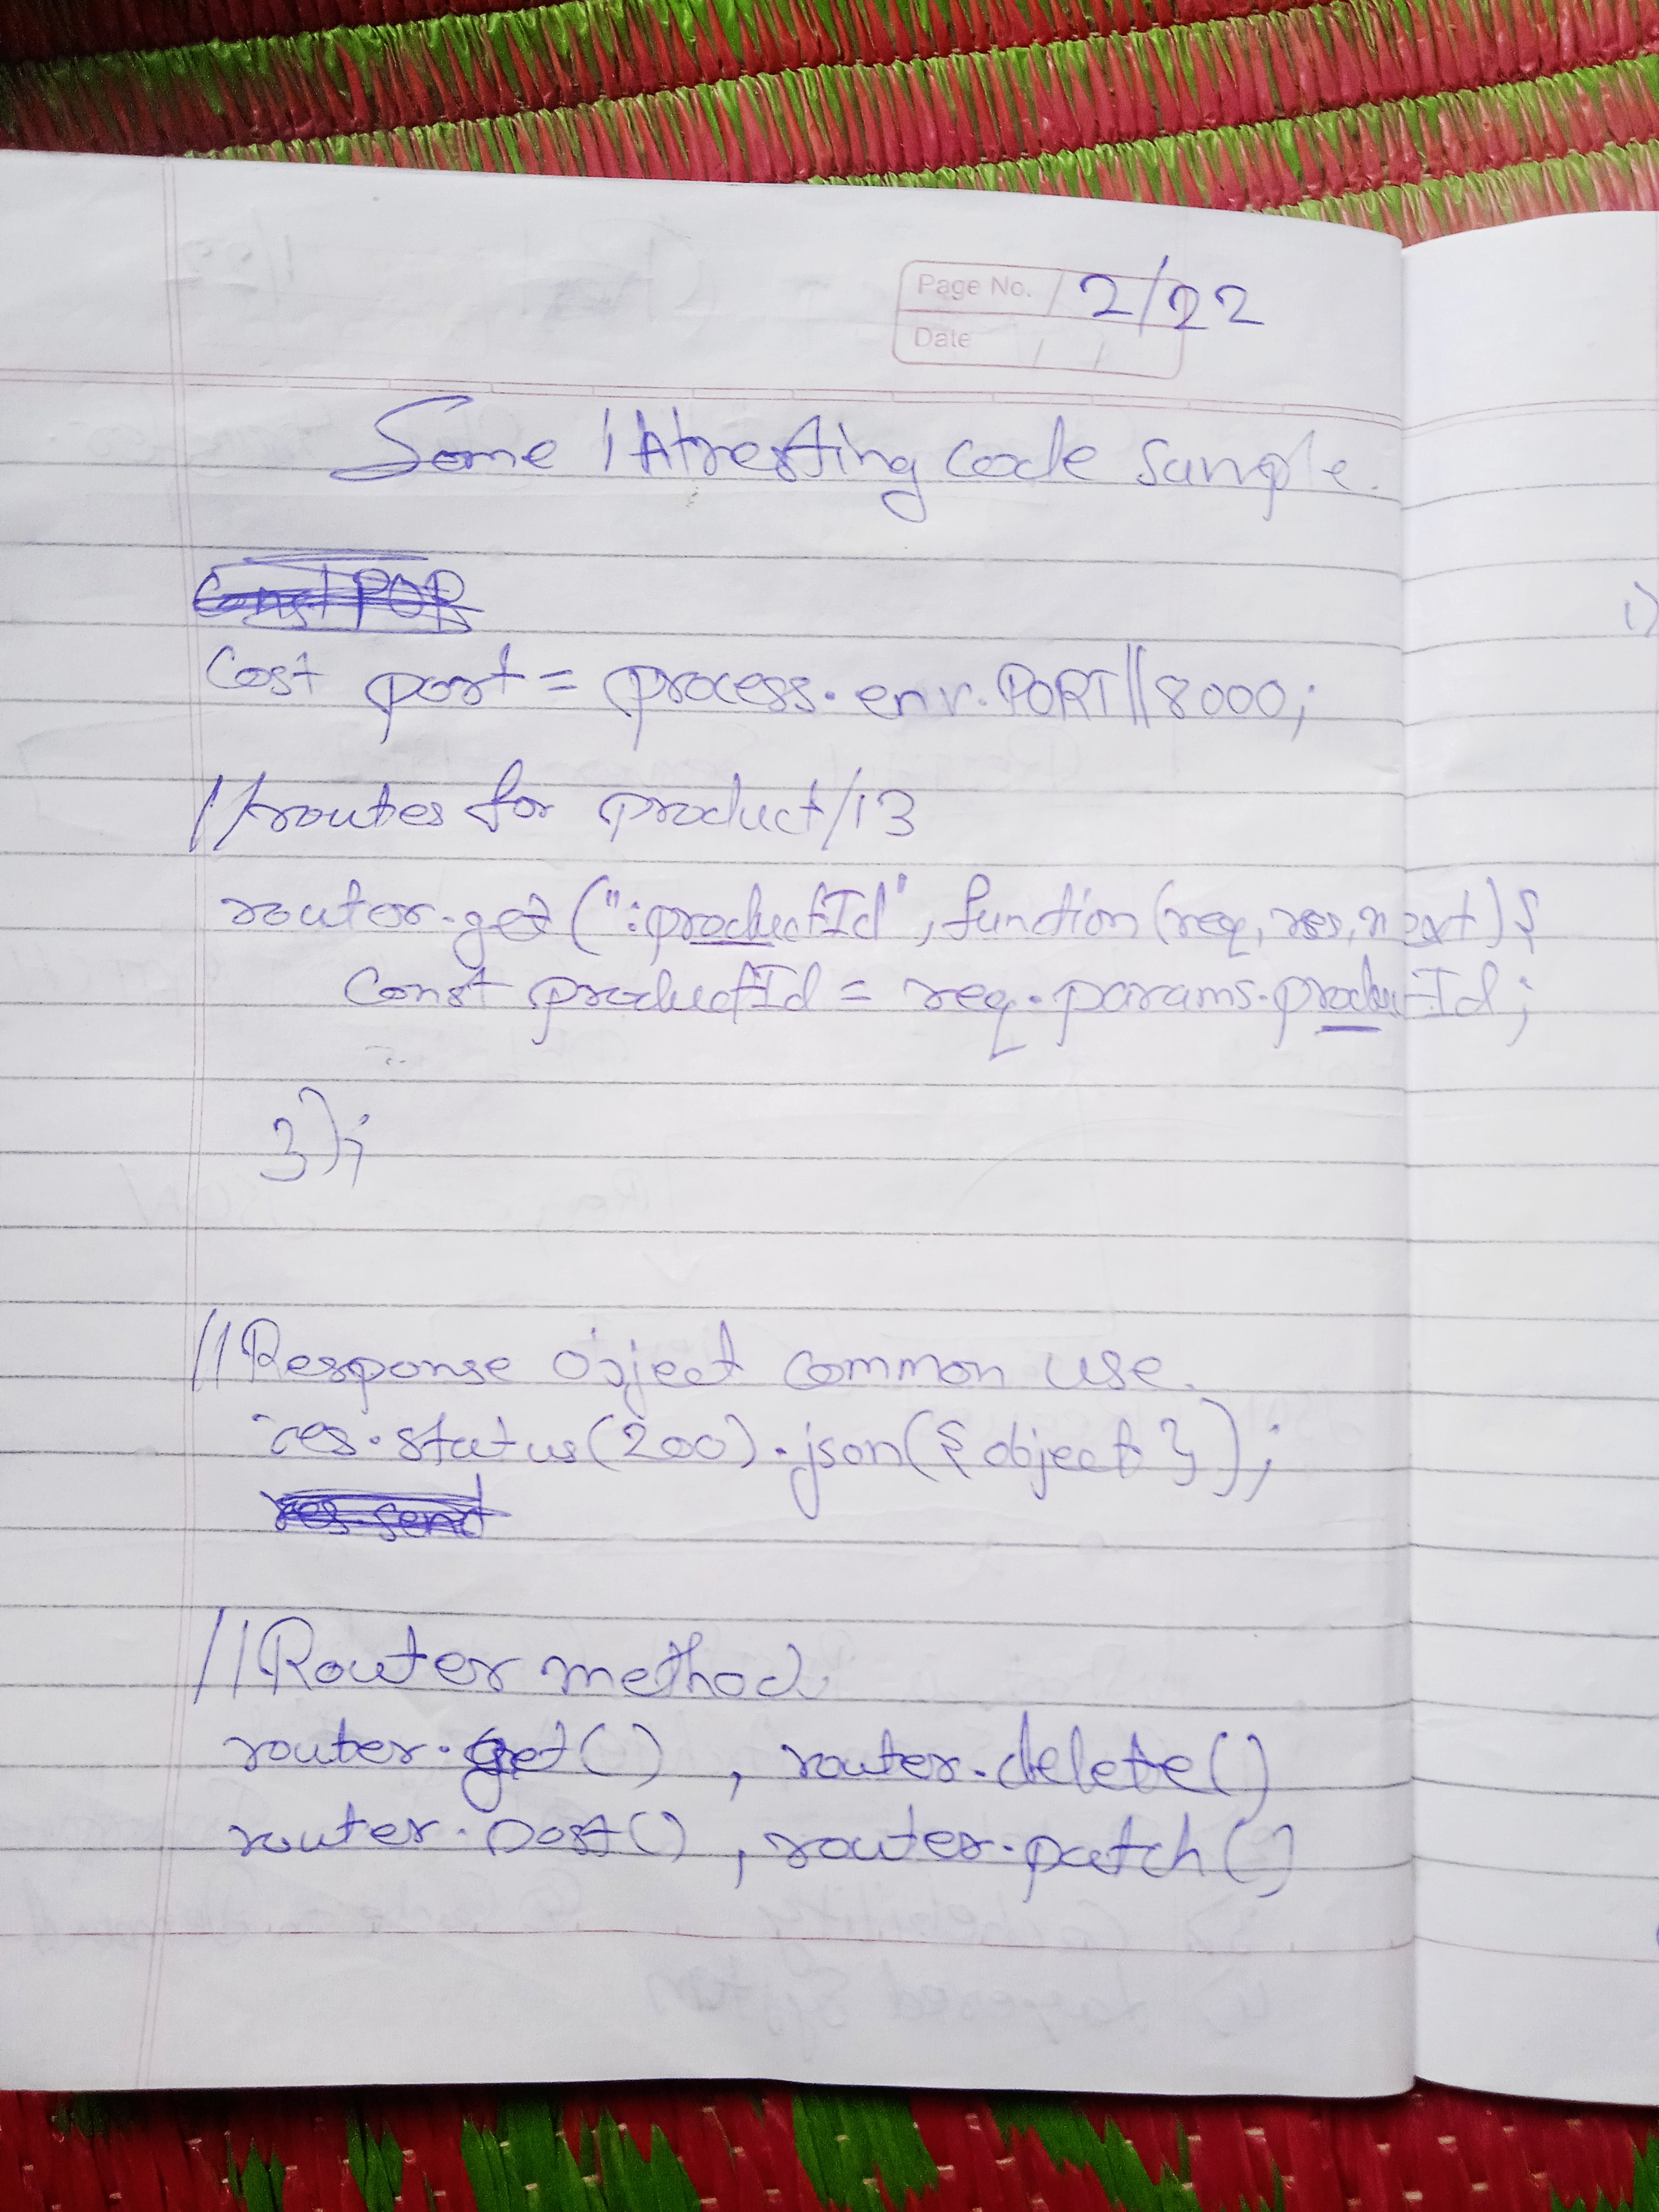 Page No. 2/22
Date / /
Some Intresting code sample.
Const POR
Cost port = process.env.PORT||8000;
//routes for product/13
router.get(":productId", function(req, res, next){
Const productId = req.params.productId;
});
//Response object common use.
res.status(200).json({object});
res.send
//Router method.
router.get() , router.delete()
router.post() , router.patch()